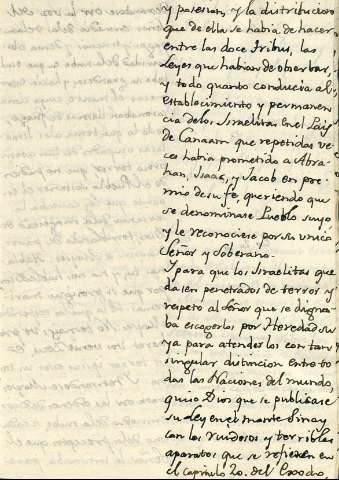 y posesion, y la distribucion
que de ella se había de hacer
entre las doce tribus, las
Leyes que habian de observar,
y todo quanto conducia al
establecimiento y permanen
cia delos Israelitas En el País
de Canaam que repetidas ve
ces habia prometido a Abra
han, Isaac, y Jacob en pre
mio de su fe, queriendo que
se denominase Pueblo suyo
y le reconociese por su unico
Señor y Soberano.
Y para que los Israelitas que
dasen penetrados de terror y
respeto al Señor que se digna
ba escogerlos por Heredad su
ya para atenderlos con tan
singular distincion entre to
das las Naciones del mundo,
quiso Dios que se publicase
su Ley en el monte Sinay
con los ruidosos y terribles
aparatos que se refieren en
el capitulo 20. del Exodo,